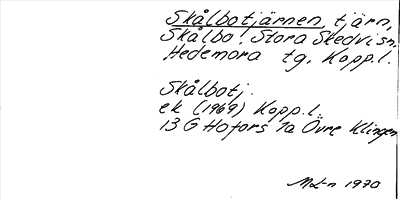 Skålbotjärnen, tjärn,
Skålbo, Stora Skedvi sn,
Hedemora tg, Kopp.l.
Skålbotj.
ek (1969) Kopp.l.
13 G Hofors 1a Övre Klingen
1970